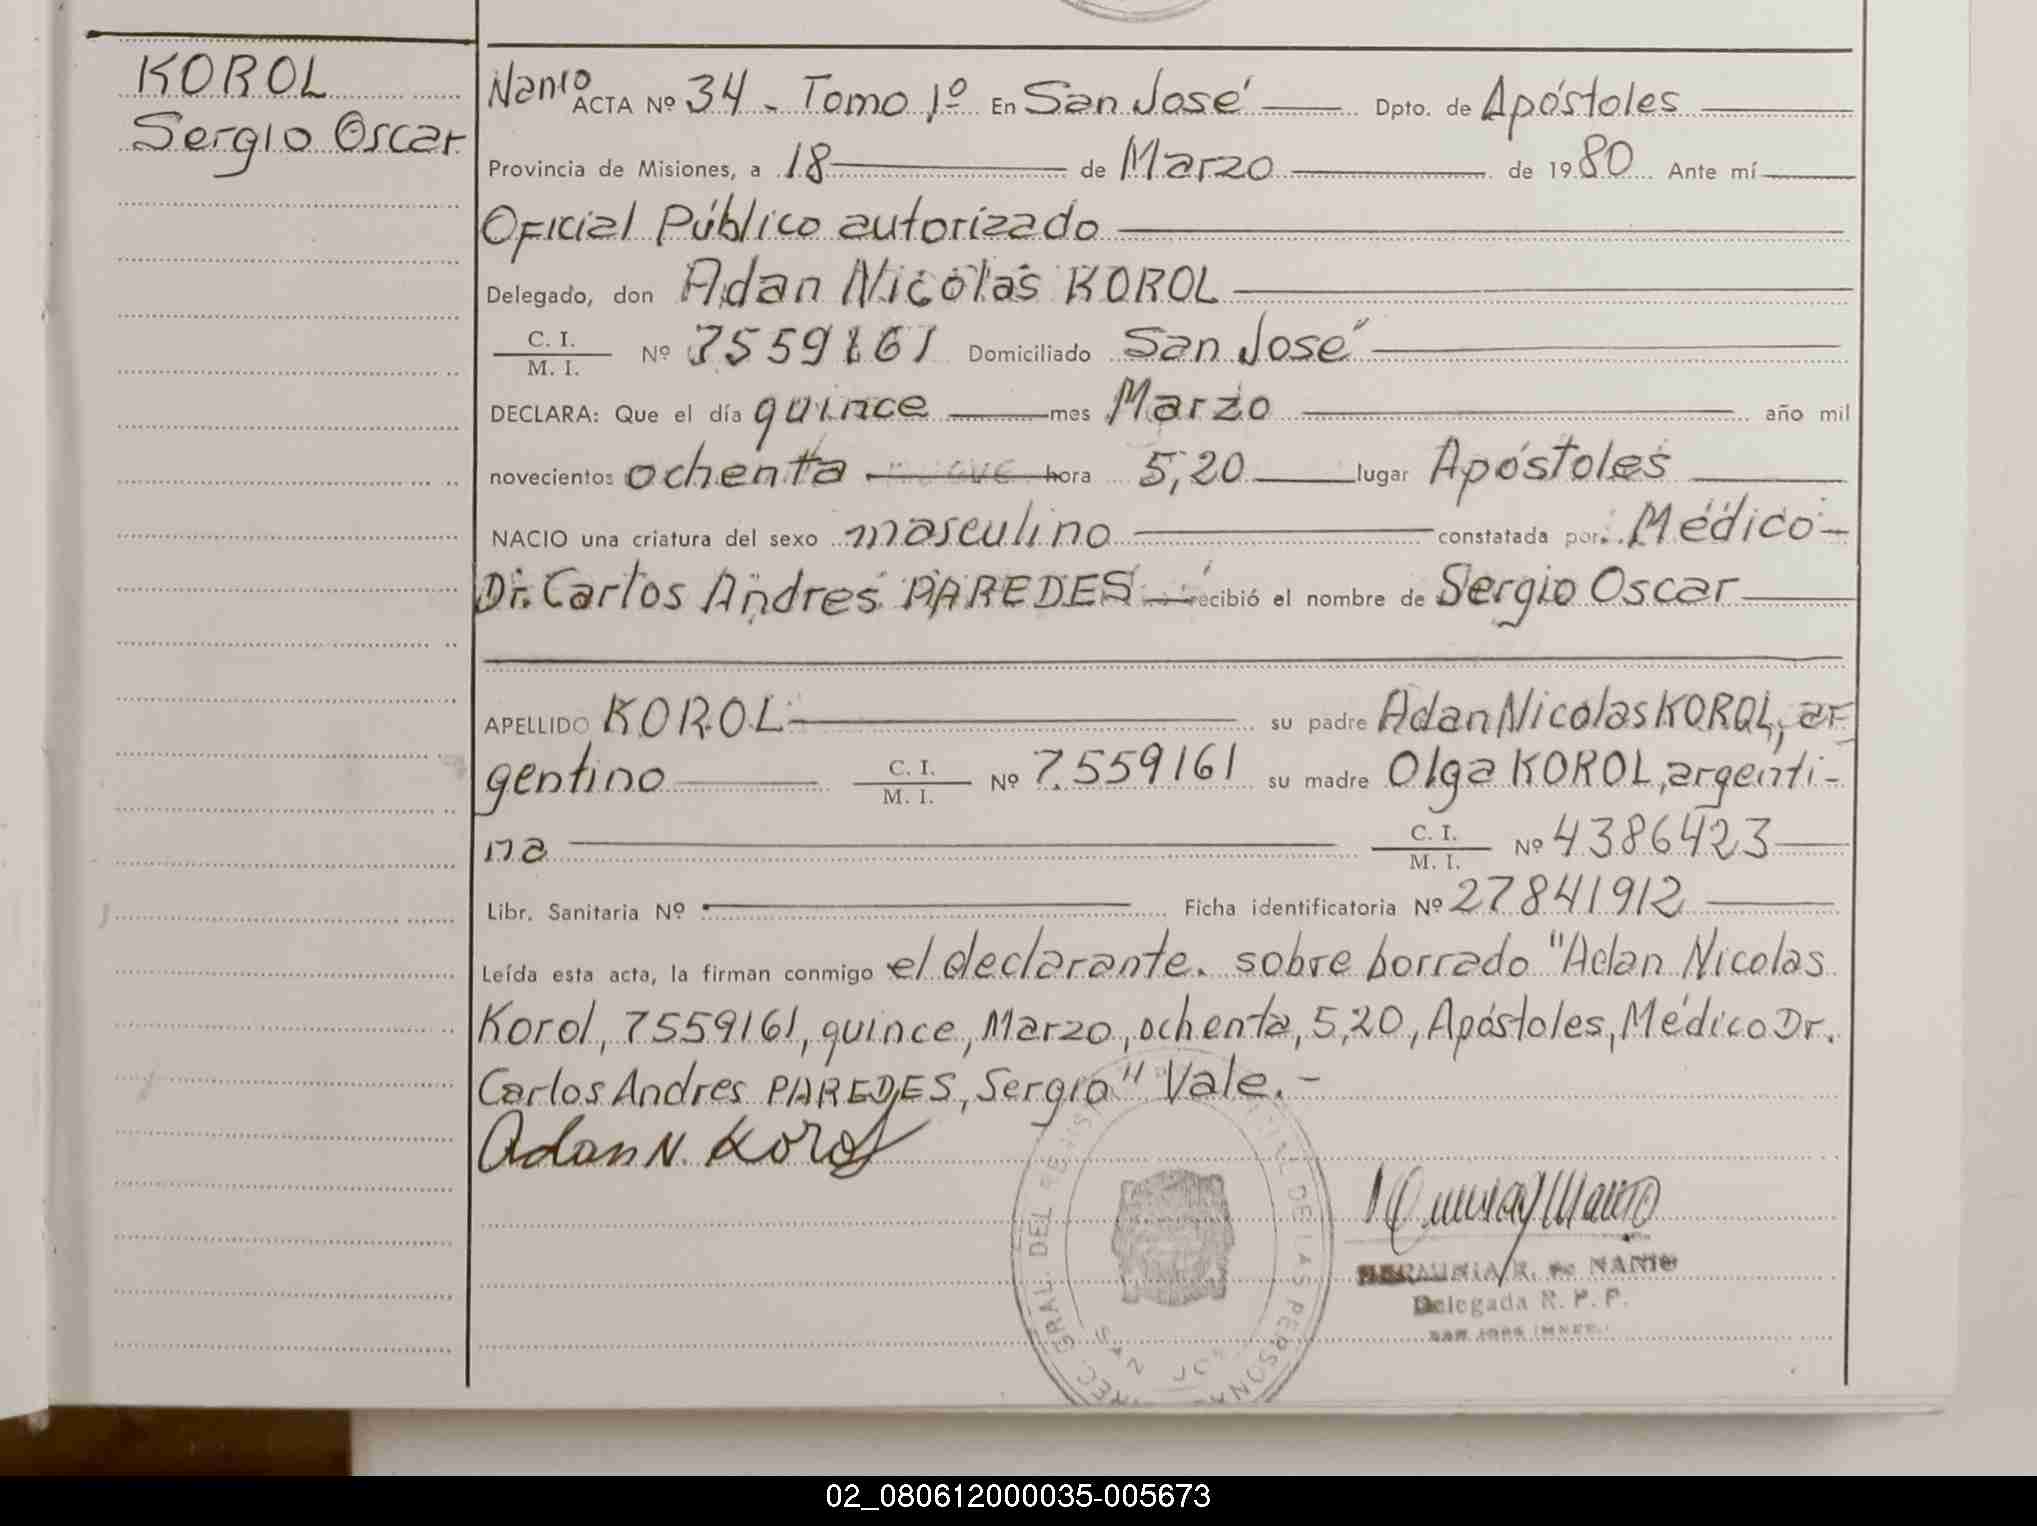 KOROL
Sergio Oscar
Nanio
ACTA Nº 34 - Tomo 1º En San José Dpto. de Apóstoles
Provincia de Misiones, a 18 de Marzo de 1980 Ante mí
Oficial Público autorizado
Delegado, don Adan Nicolas KOROL
C. I.
M. I. Nº 7559161 Domiciliado San José
DECLARA: Que el día quince mes Marzo año mil
novecientos ochenta hora 5,20 lugar Apóstoles
NACIO una criatura del sexo masculino constatada por Médico -
Dr. Carlos Andres PAREDES recibió el nombre de Sergio Oscar
APELLIDO KOROL su padre Adan Nicolas KOROL, ar
gentino C. I.
M. I. Nº 7.559161 su madre Olga KOROL, argenti-
na C. I.
M. I. Nº 4386423
Libr. Sanitaria Nº Ficha identificatoria Nº 27841912
Leída esta acta, la firman conmigo el declarante. sobre borrado "Adan Nicolas
Korol, 7559161, quince, Marzo, ochenta, 5,20, Apóstoles, Médico Dr.
Carlos Andres PAREDES, Sergio" Vale. -
Adan N. Korol
R. de NANIO
Delegada R. P. P.
GRAL. DEL DE LAS
SAN
02_080612000035-005673